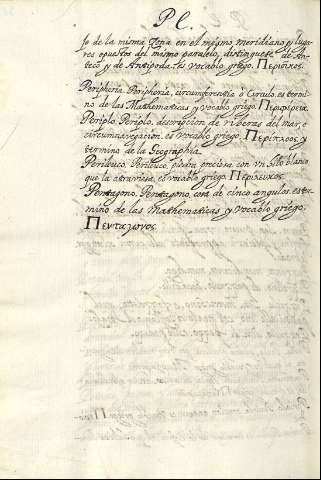 Pe.
jo de la misma Zona en el mesmo meridiano y luga-
res opuestos del mismo paralelo, distinguese de An-
teco y de Antipoda. es vocablo griego. Περιοικος.
Peripheria. Peripheria, circumferentia o Circulo. es termi-
no de las Mathematicas y vocablo griego. Περιφερεια.
Periplo. Periplo, descripcion de riberas del mar, o
circumnavegacion. es vocablo griego. Περιπλους y
termino de la Geographia.
Perileuco. Perileuco, piedra preciosa con un filo blanco
que la atraviesa, es vocablo griego. Περιλευκος.
Pentagono. Pentagono, cosa de cinco angulos. es ter-
mino de las Mathematicas y vocablo griego.
Πενταγωνος.